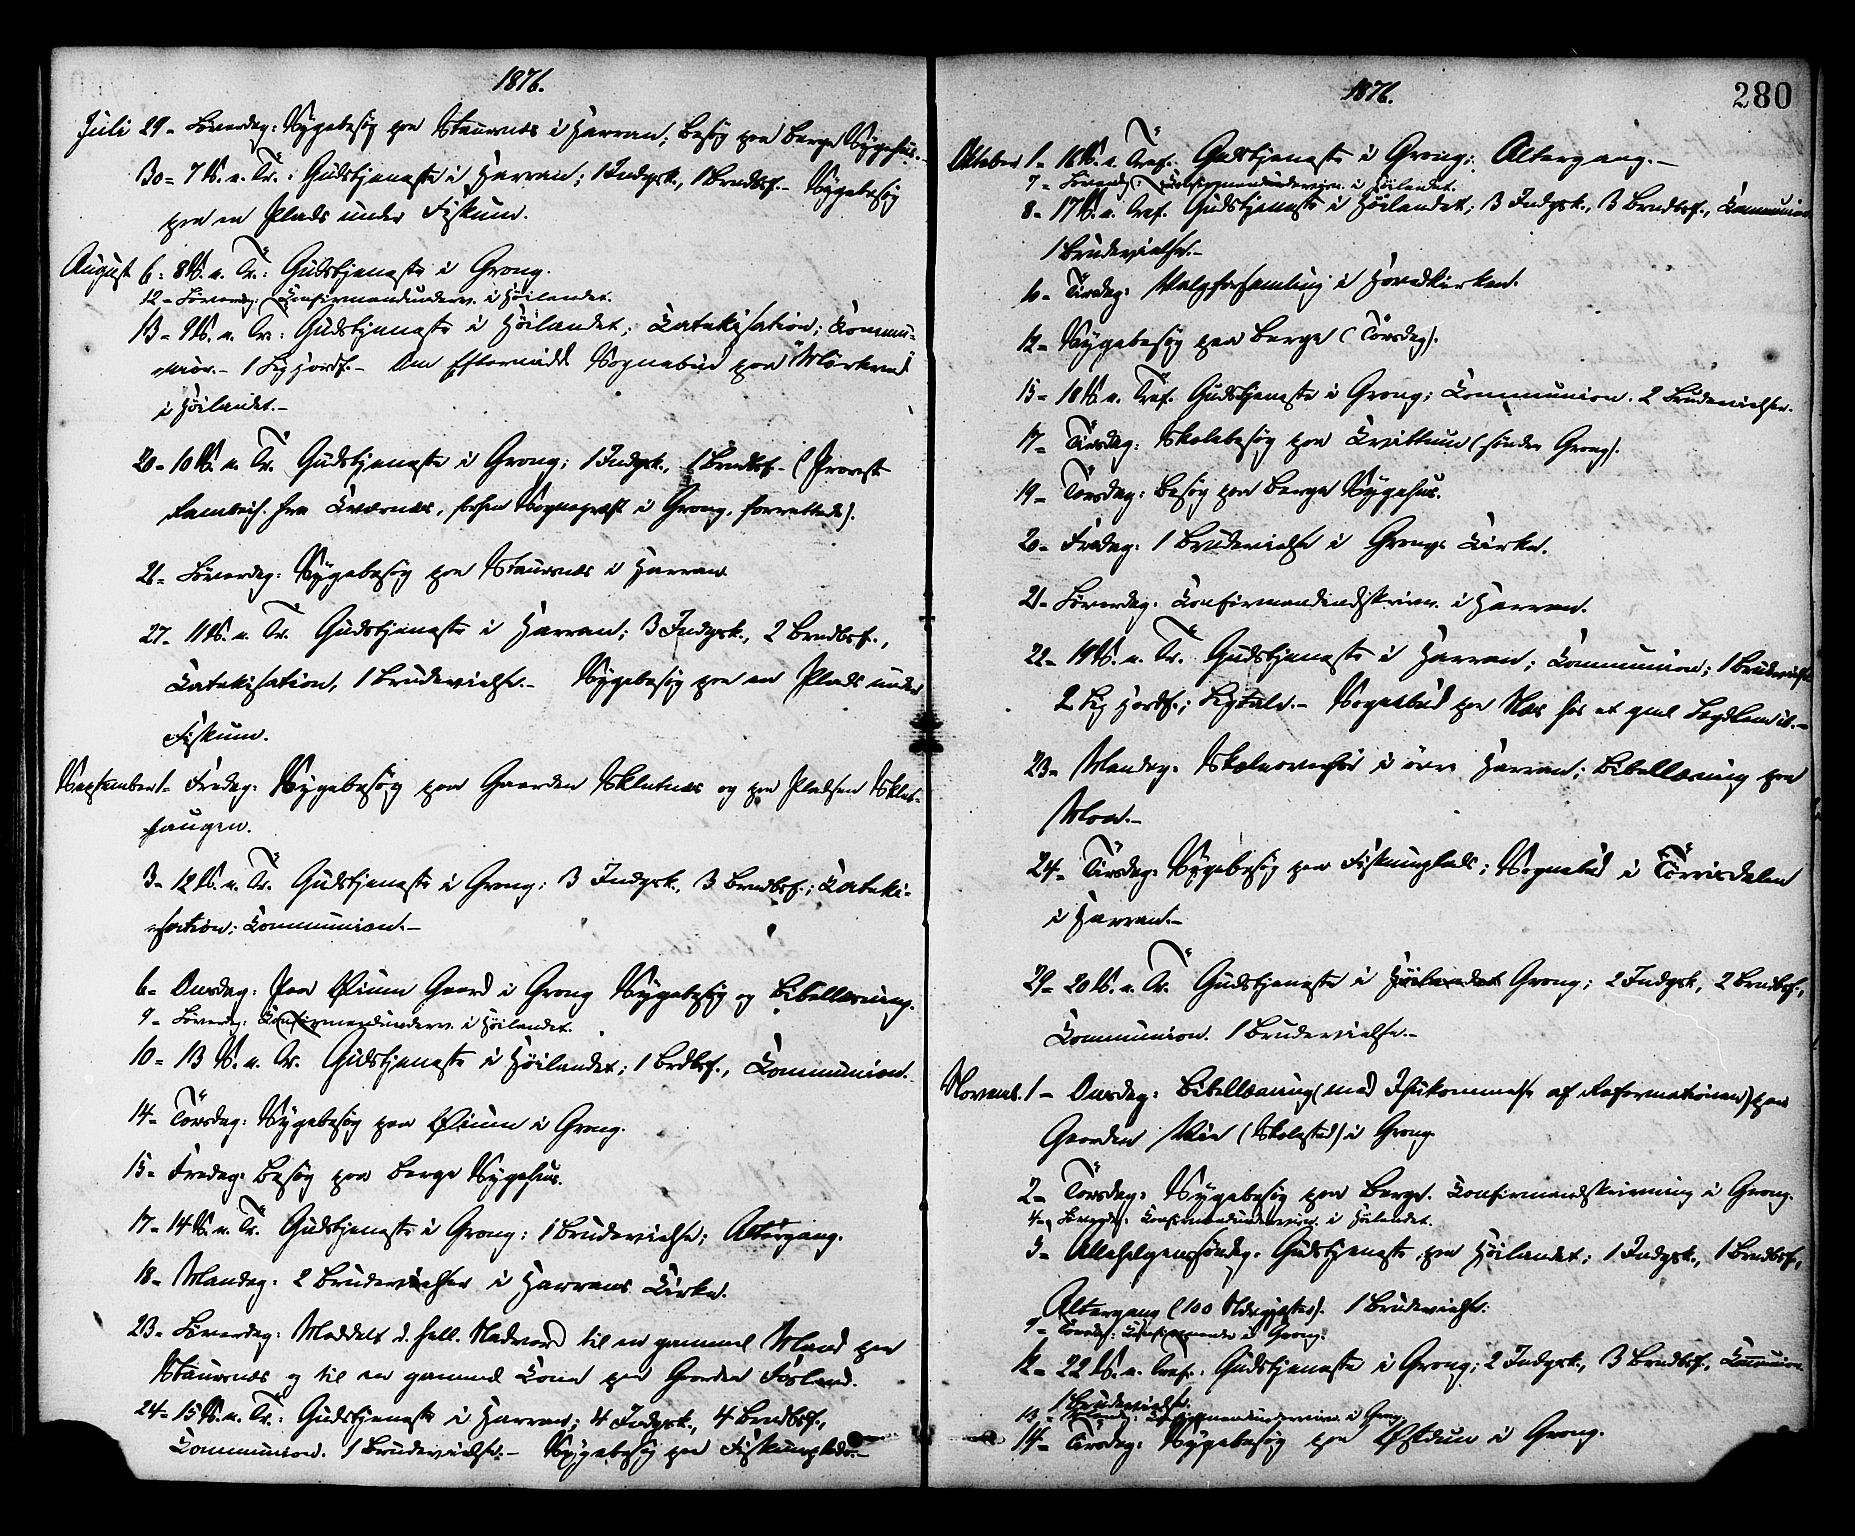 1876.
Juli 29- Løverdag: Sygebesøg paa Staursnes i Harran; Besøg paa Berge Sygehus.-
30- 7 S. e. Tr.: Gudstjeneste i Harran; 1 Indgsk., 1 Brndbsf.- Sygebesøg
paa en Plads under Fiskum.
August 6- 8 S. e. Tr.: Gudstjeneste i Grong.
12- Løverdag: Confirmandunderv. i Høilandet.
13- 9 S. e. Tr.: Gudstjeneste i Høilandet; Catekisation; Commu-
nion.- 1 Lig jordf.- Om Eftermidd. Sognebud paa Mørkved
i Høilandet.-
20- 10 S. e. Tr. Gudstjeneste i Grong; 1 Indgsk., 1 Brndbsf.- (Provst
fra Kværnæs, forhen Sognepræst i Grong, forrettede).
21- Løverdag: Sygebesøg paa Staursnes i Harran
27- 11 S. e. Tr. Gudstjeneste i Harran; 3 Indgsk., 2 Brndbsf.,
Catekisation, 1 Brudevielse.- Sygebesøg paa en Plads under
Fiskum.
September 1- Fredag: Sygebesøg paa Gaarden Skletnæs og paa Pladsen Sklet-
haugen.
3- 12 S. e. Tr. Gudstjeneste i Grong; 3 Indgsk., 3 Brndbsf.; Cateki-
sation; Communion.-
6- Onsdag: Paa Øium Gaard i Grong Sygebesøg og Bibellæsning.
9- Løverdag: Confirmandunderv. i Høilandet.
10- 13 S. e. Tr. Gudstjeneste i Høilandet; 1 Brdbsf., Communion.
14- Torsdag: Sygebesøg paa Øium i Grong.
15- Fredag: Besøg paa Berge Sygehus.
17- 14 S. e. Tr. Gudstjeneste i Grong; 1 Brudevielse; Altergang.
18- Mandag: 2 Brudevielser i Harrans Kirke.
23- Løverdag: Meddelt d. hell. Nadver til en gammel Mand paa
Staursnes og til en gammel Kone paa Gaarden Fosland.
24- 15 S. e. Tr.: Gudstjeneste i Harran; 4 Indgsk., 4 Brndbsf.,
Communion. 1 Brudevielse.- Sygebesøg paa Fiskumplads.-
1876.
280
Oktober 1- 16 S. e. Tref. Gudstjeneste i Grong; Altergang.-
7- Løverdag: Confirmandunderviisn. i Høilandet.
8- 17 S. e. Tref. Gudstjeneste i Høilandet; 3 Indgsk., 3 Brndbsf., Communion
1 Brudevielse.-
10- Tirsdag: Valgforsamling i Hovedkirken.
12- Sygebesøg paa Berge (Torsdag).
15- 18 S. e. Tref. Gudstjeneste i Grong; Communion. 2 Brudevielser.
17- Tirsdag: Skolebesøg paa Kvittum (søndre Grong).
19- Torsdag: Besøg paa Berge Sygehus.
20- Fredag: 1 Brudevielse i Grongs Kirke.
21- Løverdag: Confirmandindskrivn. i Harran.
22- 19 S. e. Tr. Gudstjeneste i Harran; Communion; 1 Brudevielse
2 Lig jordf.; Ligtale.- Sognebud paa Næs hos et gml Lægdlem.-
23- Mandag: Skoleoverhør i øvre Harran; Bibellæsning paa
Moa.-
24- Tirsdag: Sygebesøg paa Fiskumplads; Sognebud i Tørrisdalen
i Harran.-
29- 20 S. e. Tr. Gudstjeneste i Høilandet Grong; 2 Indgsk, 2 Brndbsf.,
Communion. 1 Brudevielse.-
Novemb. 1- Onsdag: Bibellæsning (med Ihukommelse af Reformationen) paa
Gaarden Vie (Skolested) i Grong.
2- Torsdag: Sygebesøg paa Berge. Confirmandskrivning i Grong.
4- Løverdag: Confirmandunderviisn. i Høilandet.
5- Allehelgenssøndag: Gudstjeneste paa Høilandet; 1 Indgsk., 1 Brndbsf.,
Altergang (100 Altergjester). 1 Brudevielse.
9- Torsdag: i Grong.
12- 22 S. e. Tref.: Gudstjeneste i Grong; 2 Indgsk., 3 Brndbsf., Communion
1 Brudevielse.
13- Mandag: Confirmandunderviisn. i Grong
14- Tirsdag: Sygebesøg paa Østdun i Grong.